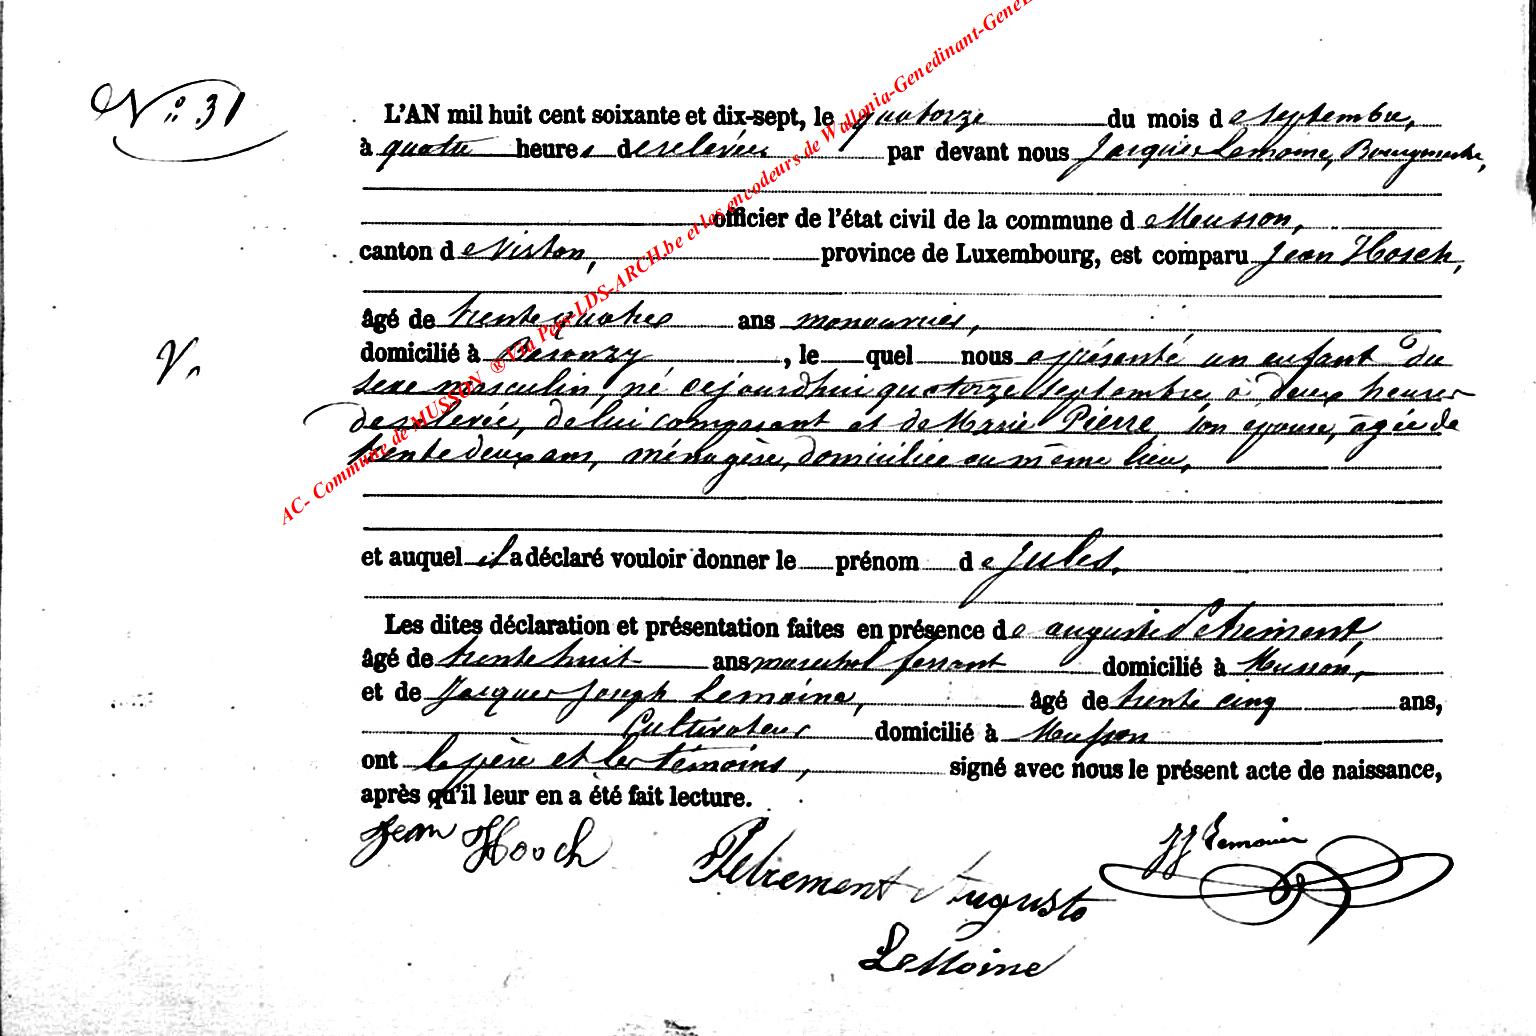 N° 31
L'AN mil huit cent soixante et dix-sept, le quatorze du mois de septembre,
à quatre heures de relevée par devant nous Jacques Lemoine, Bourgmestre,
officier de l'état civil de la commune de Musson,
canton de Virton, province de Luxembourg, est comparu Jean Hosch,
âgé de trente quatre ans manœuvrier,
domicilié à Baranzy, le quel nous a présenté un enfant du
sexe masculin, né cejourdhui quatorze septembre à deux heures
de relevée, de lui comparant et de Marie Pierre son épouse, âgée de
trente deux ans, ménagère, domiciliée au même lieu,
et auquel il a déclaré vouloir donner le prénom de Jules,
Les dites déclaration et présentation faites en présence de auguste Petrement,
âgé de trente huit ans marechal ferrant domicilié à Musson,
et de Jacques Joseph Lemoine, âgé de trente cinq ans,
Cultivateur domicilié à Musson
ont le père et les témoins, signé avec nous le présent acte de naissance,
après qu'il leur en a été fait lecture.
Jean Hooch
Petrement Auguste
JJ Lemoine
LeMoine
AC- Commune de MUSSON ® Via Pers-LDS-ARCH.be et les encodeurs de Wallonia-Genedinant-Gene